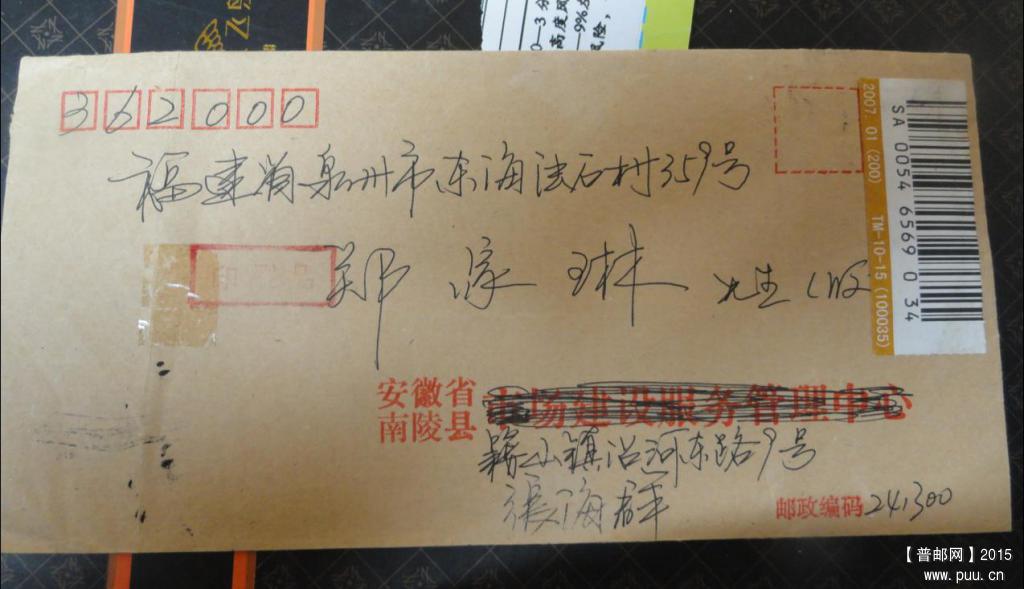 0—3分
高度风
—9%为
风险，
362000
福建省泉州市东海法石村359号
郑家琳 先生(收
2007.01 (200) TM-10-15 (100035)
SA 0054 6569 0 34
安徽省
南陵县 市场建设服务管理中心
籍山镇沿河东路9号
張海群
邮政编码 241300
【普邮网】2015
www.puu.cn